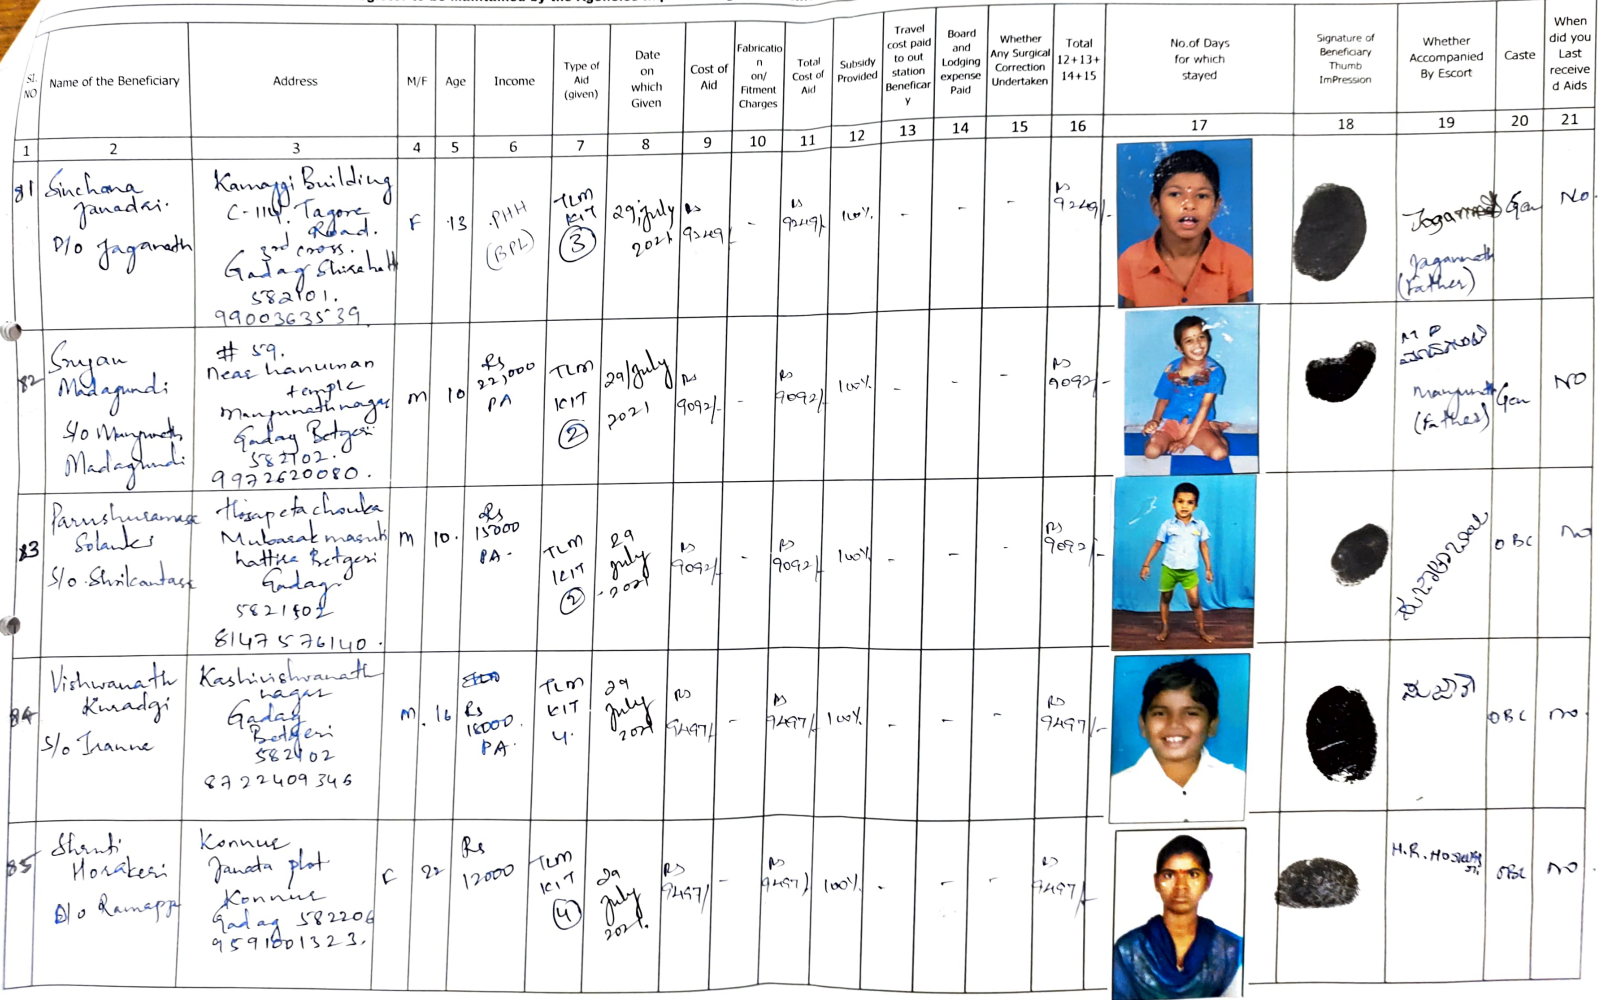 Sl. NO
Name of the Beneficiary
Address
M/F
Age
Income
Type of Aid (given)
Date on which Given
Cost of Aid
Fabricatio n on/ Fitment Charges
Total Cost of Aid
Subsidy Provided
Travel cost paid to out station Beneficar y
Board and Lodging expense Paid
Whether Any Surgical Correction Undertaken
Total 12+13+ 14+15
No.of Days for which stayed
Signature of Beneficiary Thumb ImPression
Whether Accompanied By Escort
Caste
When did you Last receive d Aids
1 2 3 4 5 6 7 8 9 10 11 12 13 14 15 16 17 18 19 20 21
81
Sinchana
Janadri.
D/o Jaganath
Kamaggi Building
C-114, Tagore
Road.
3rd cross.
Gadag Shirahatti
582101.
9900363539.
F
13
PHH
(BPL)
TLM
KIT
3
29, July
2021
Rs
9249/-
-
Rs
9249/-
100%
-
-
-
Rs
9249/-
Jagannath
(Father)
Gen
No.
82
Srujan
Madagundi
S/o Manjunath
Madagundi
# 59.
Near hanuman
temple
Manjunathnagar
Gadag Betgeri
582102.
9972620080.
M
10
Rs
22,000
PA
TLM
KIT
2
29/July
2021
Rs
9092/-
-
Rs
9092/-
100%
-
-
-
Rs
9092/-
M P
Manjunath
(Father)
Gen
NO
83
Parushuramasa
Solanki
S/o. Shrikantasa
Hosapeta chouka
Mubarak masuti
hattira Betgeri
Gadag
8147576140.
M
10.
Rs
15000
PA.
TLM
KIT
2
29
July
2021
Rs
9092/-
-
Rs
9092/-
100%
-
-
-
Rs
9092/-
OBC
no
84
Vishwanath
Kuradgi
S/o Iranna
Kashivishwanath
nagar
Gadag
Betgeri
582102
8722409345
M.
16
Rs
18000.
PA.
TLM
KIT
4.
29
July
2021
Rs
9497/-
-
Rs
9497/-
100%
-
-
-
Rs
9497/-
ಸುಜಾತ
OBC
no.
85
Shruti
Horakeri
D/o Ramappa
Konnur
Janata plot
Konnur
Gadag 582206
9591001323.
F
22
Rs
12000
TLM
KIT
4
29
July
2021.
Rs
9497/-
-
Rs
9497/-
100%
-
-
-
Rs
9497/-
H.R.
OBC
no